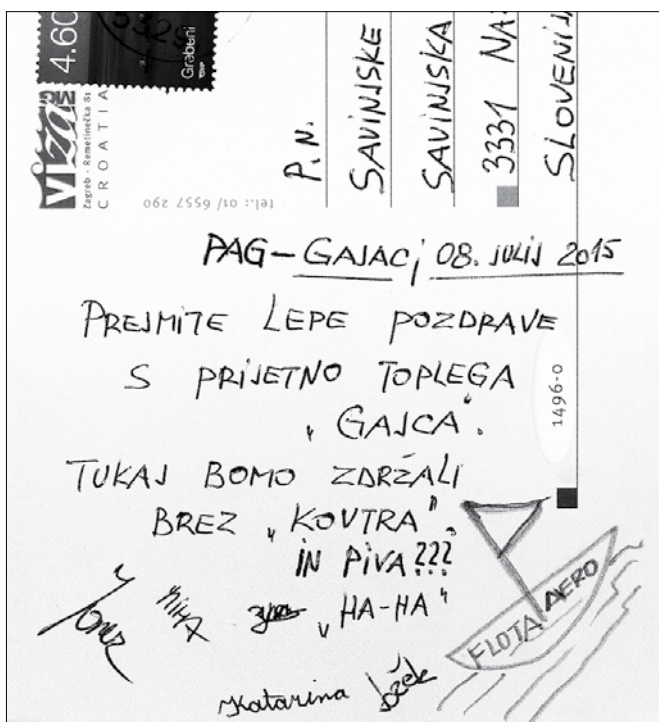 4.60
Grebeni
VIZA
Zagreb - Remetinečka 81
CROATIA
tel.: 01/ 6557 290
P.N.
SAVINJSKE
SAVINJSKA
3331 NA
SLOVENIJ
PAG-GAJAC, 08. JULIJ 2015
PREJMITE LEPE POZDRAVE
S PRIJETNO TOPLEGA
"GAJCA".
TUKAJ BOMO ZDRŽALI
BREZ "KOVTRA".
IN PIVA???
"HA-HA"
Katarina
FLOTA AERO
1496-0